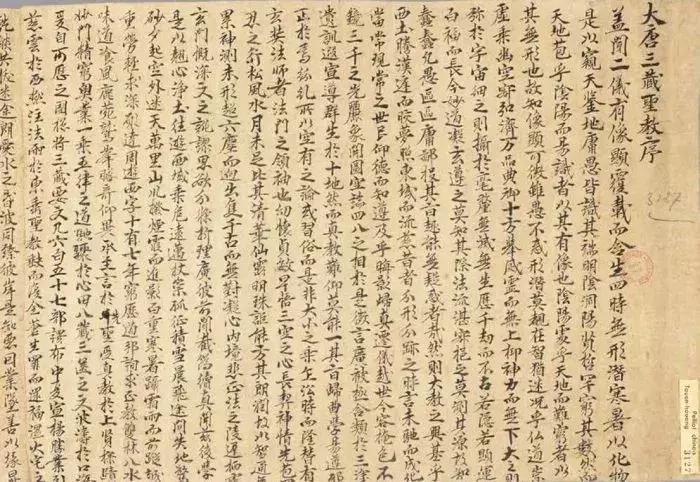 大唐三藏聖教序
盖聞二儀有像顯覆載而含生四時無形潛寒暑以化物
是以窺天鑒地庸愚皆識其端明陰洞陽賢哲罕窮其數然而
天地苞乎陰陽而易識者以其有像也陰陽處乎天地而難窮者以
其無形也故知像顯可徵雖愚不惑形潛莫覩在智猶迷況乎仏道崇
虛乘幽空寂弘濟万品典御十方舉威靈而無上抑神力而無下大之則
弥於宇宙細之則攝於毫釐無滅無生歷千劫而不古若隱若顯運
百福而長今妙道凝玄遵之莫知其際法流湛寂挹之莫測其源故知
蠢蠢凡愚區區庸鄙投其旨趣能無疑惑者哉然則大教之興基乎
西土騰漢庭而皎夢照東域而流慈昔者分形分跡之時言未馳而成化
當常現常之世民仰德而知遵及乎晦影歸真遷儀越世金容掩色不
鏡三千之光麗象開圖空端四八之相於是微言廣被拯含類於三塗
遺訓遐宣導群生於十地然而真教難仰莫能一其旨歸曲學易遵邪
正於焉紛糺所以空有之論或習俗而是非大小之乘乍沿時而隆替有
玄奘法師者法門之領袖也幼懷貞敏早悟三空之心長契神情先苞四
忍之行松風水月未足比其清華仙露明珠詎能方其朗潤故以智通無
累神測未形超六塵而迥出隻千古而無對凝心內境悲正法之陵遲栖慮
玄門慨深文之訛謬思欲分條析理廣彼前聞截僞續真開茲後學
是以翹心淨土往遊西域乘危遠邁杖策孤征積雪晨飛途間失地驚
砂夕起空外迷天萬里山川撥煙霞而進影百重寒暑躡霜雨而前蹤誠
重勞輕求深願達周遊西宇十有七年窮歷道邦詢求正教雙林八水
味道飡風鹿苑鷲峯瞻奇仰異承至言於先聖受真教於上賢探賾
妙門精窮奧業一乘五律之道馳驟於心田八藏三篋之文波濤於口海
爰自所歷之國揔將三藏要文凡六百五十七部譯布中夏宣揚勝業引
慈雲於西極注法雨於東垂聖教缺而復全蒼生罪而還福濕火宅之
乾焰共拔迷途朗愛水之昏波同臻彼岸是知惡因業墜善以緣昇
3127
Pelliot chinois
Touen-houang
3127